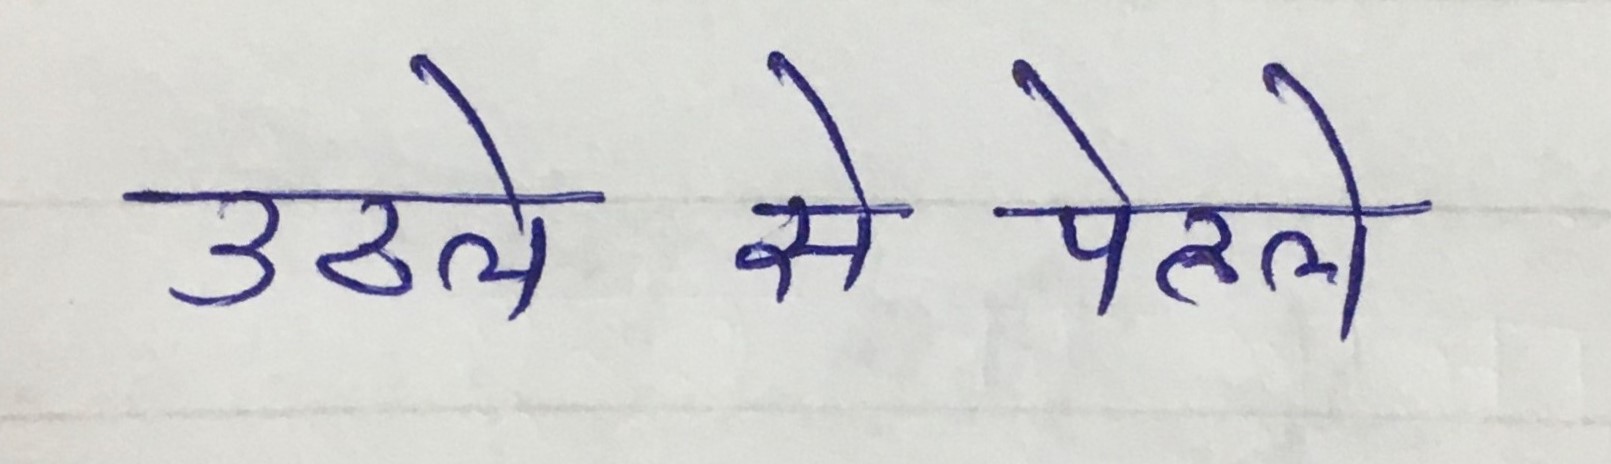 उठले से पेहले